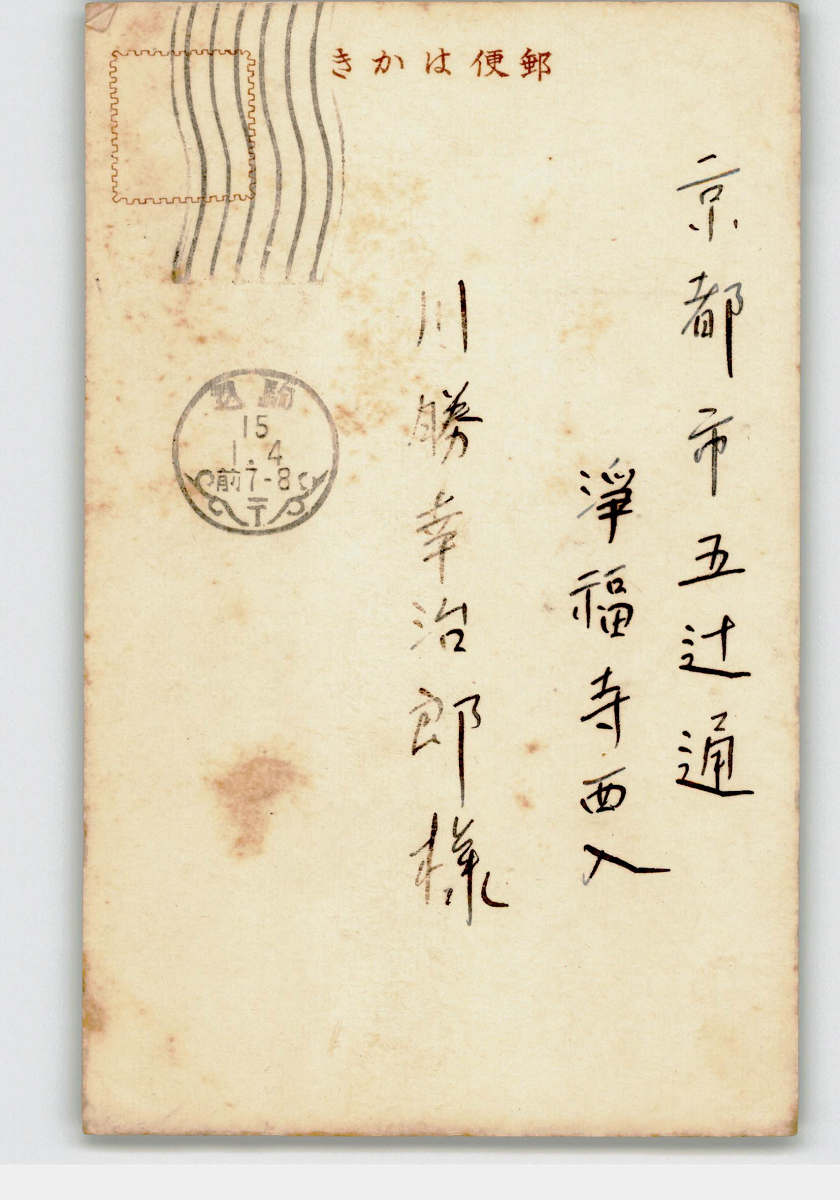 郵便はかき
京都市五辻通
淨福寺西入
川勝幸治郎様
駒込
15
1.4
前7-8
〒